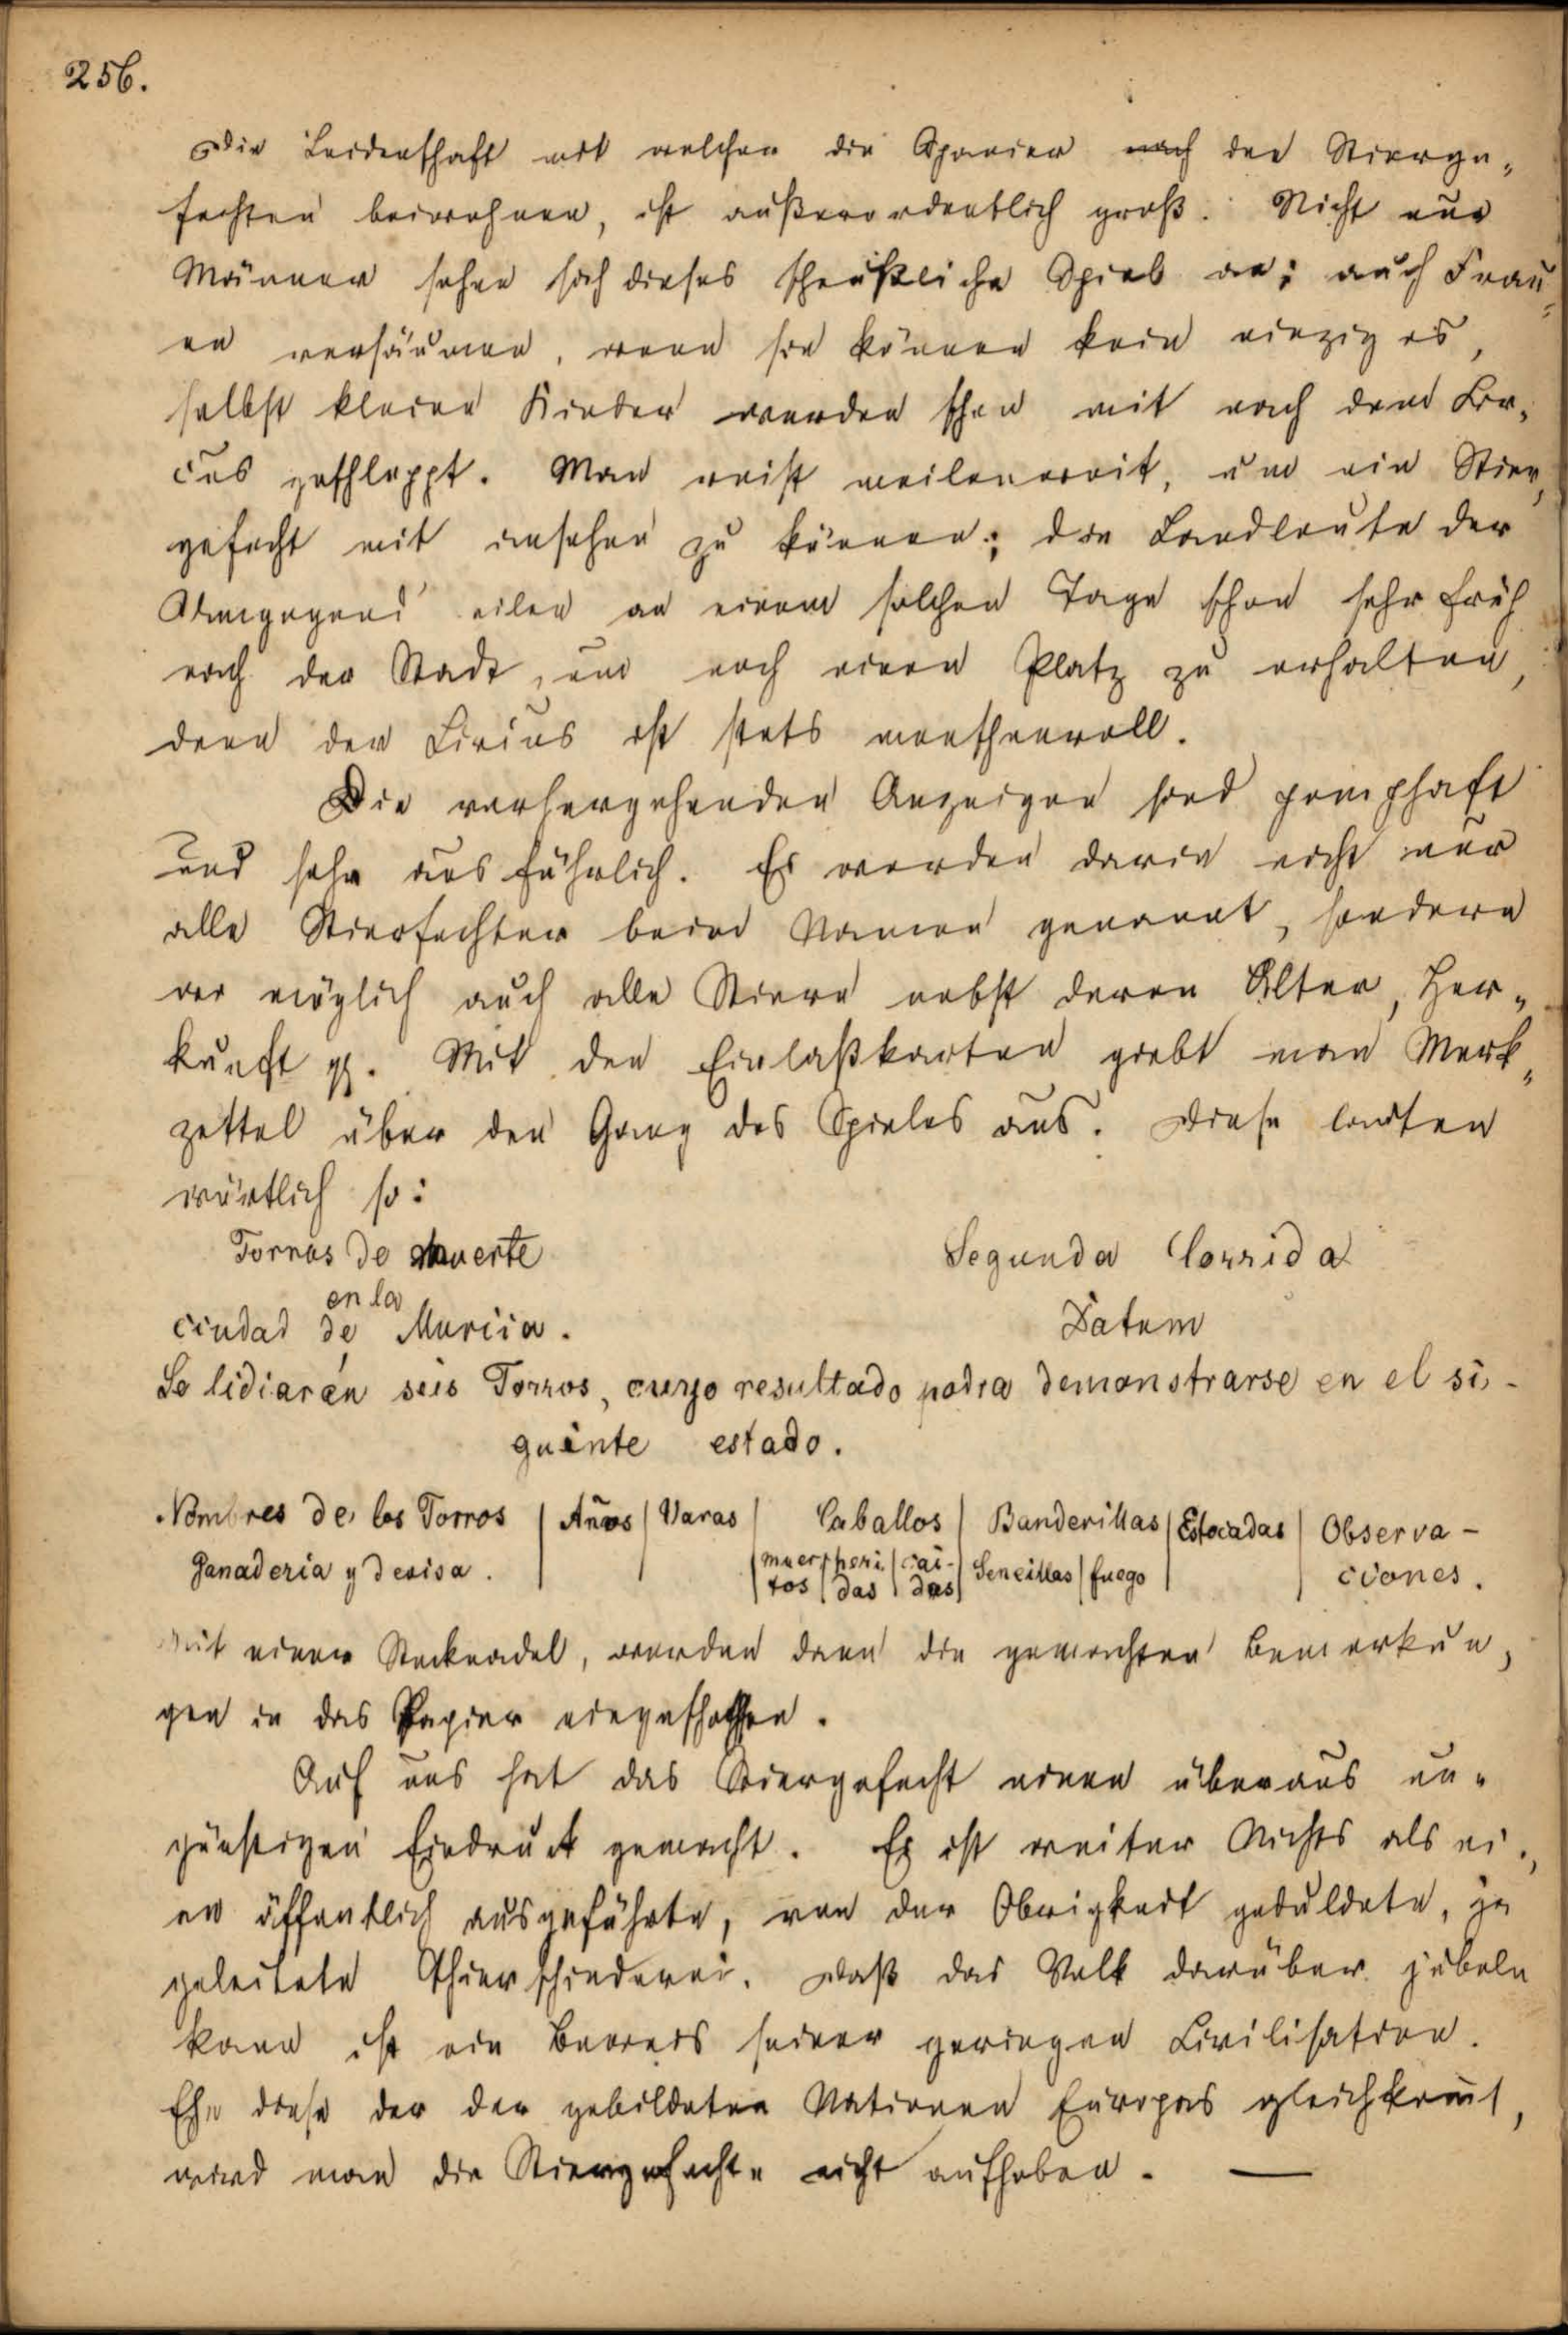 256.
Die Leidenschaft mit welcher die Spanier nach den Stierge-
fechten beiwohnen, ist außerordentlich groß. Nicht nur
Männer sehen sich dieses scheußliche Spiel an; auch Frau-
en versäumen, wenn sie können kein einziges,
selbst kleine Kinder werden schon mit nach dem Cir-
cus geschleppt. Man reist meilenweit, um ein Stier-
gefecht mit ansehen zu können; die Landleute der
Umgegend eilen an einem solchen Tage schon sehr früh
nach der Stadt, um noch einen Platz zu erhalten,
denn der Circus ist stets menschenvoll.
Die vorhergehenden Anzeigen sind pomphaft
und sehr ausführlich. Es werden darin nicht nur
alle Stierfechter beim Namen genannt, sondern
wo möglich auch alle Stiere nebst deren Alter, Her-
kunft pp. Mit den Einlaßkarten giebt man Merk-
zettel über den Gang des Spieles aus. Diese lauten
wörtlich so:
Torros de muerte Segunda Corrida
en la
ciudad de Murcia. Datum
Se lidiarán seis Torros, cuyo resultado podra demonstrarse en el si-
guinte estado.
Nombres de los Torros | Años | Varas | Caballos | Banderillas | Estocadas | Observa-
Ganaderia y devisa. | muer- | heri | cai- | Sencillas | fuego | ciones.
tos | das | das
Mit einer Stecknadel, werden dann die gemachten Bemerkun-
gen in das Papier eingestochen.
Auf uns hat das Stiergefecht einen überaus un-
günstigen Eindruck gemacht. Es ist weiter Nichts als ei-
ne öffentlich ausgeführte, von der Obrigkeit geduldete, ja
geleitete Thierschinderei. Daß das Volk darüber jubeln
kann ist ein Beweis seiner geringen Civilisation.
Ehe diese der der gebildeten Nationen Europas gleichkom̄t,
wird man die Stiergefechte nicht aufheben. —